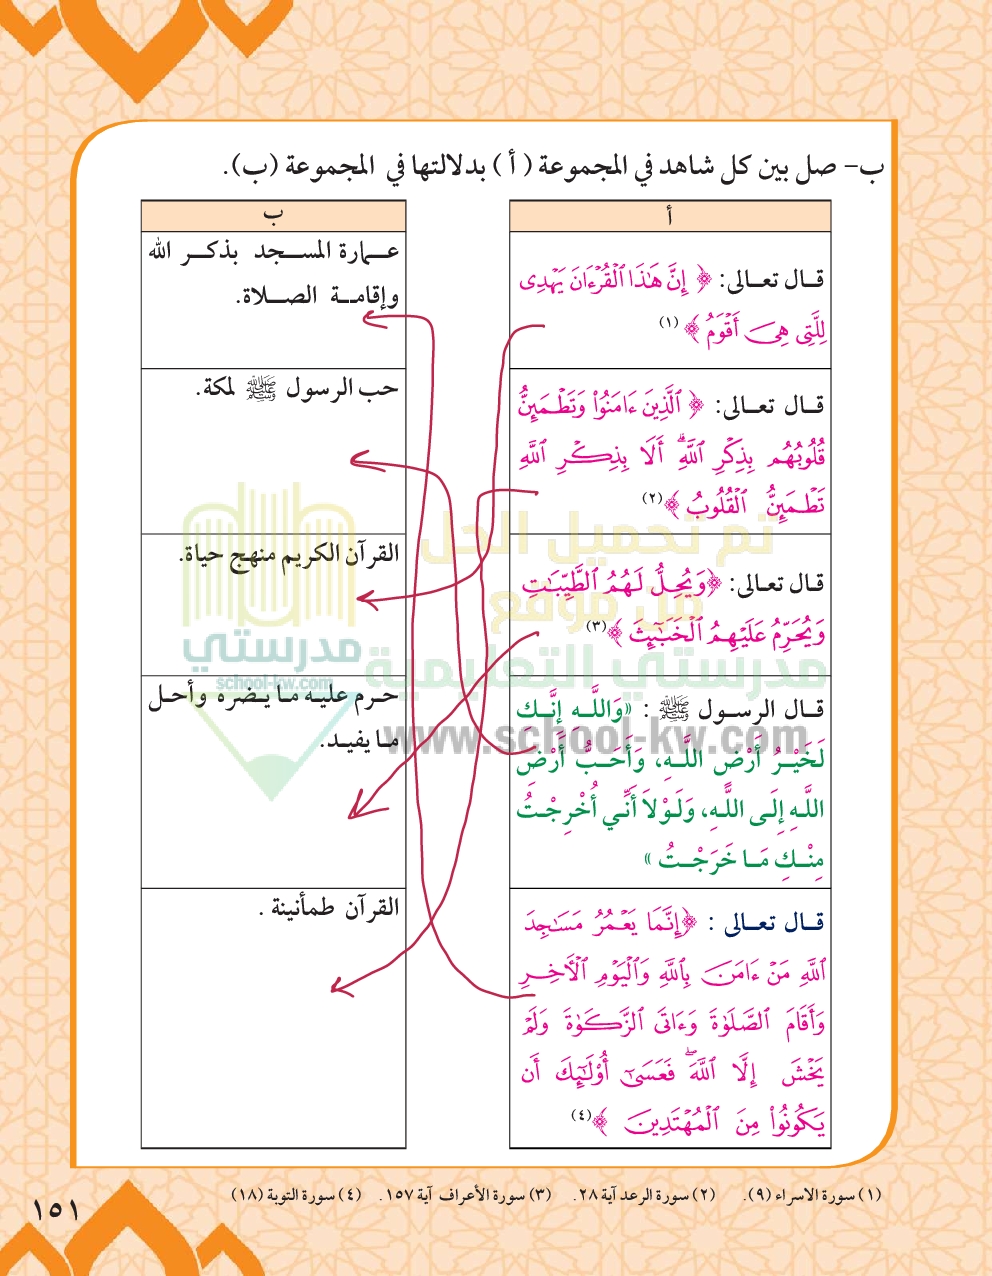 ب- صل بين كل شاهد في المجموعة (أ) بدلالتها في المجموعة (ب).
أ
قال تعالى: ﴿ إِنَّ هَٰذَا ٱلْقُرْءَانَ يَهْدِى
لِلَّتِى هِىَ أَقْوَمُ ﴾ (١)
قال تعالى: ﴿ ٱلَّذِينَ ءَامَنُوا۟ وَتَطْمَئِنُّ
قُلُوبُهُم بِذِكْرِ ٱللَّهِ ۗ أَلَا بِذِكْرِ ٱللَّهِ
تَطْمَئِنُّ ٱلْقُلُوبُ ﴾ (٢)
قال تعالى: ﴿وَيُحِلُّ لَهُمُ ٱلطَّيِّبَٰتِ
وَيُحَرِّمُ عَلَيْهِمُ ٱلْخَبَٰٓئِثَ ﴾ (٣)
قال الرسول ﷺ : «وَاللَّه إنَّك
لَخَيْرُ أَرْضِ اللَّهِ، وَأَحَبُّ أَرْضِ
اللَّهِ إِلَى اللَّهِ، وَلَوْلاَ أَنِّي أُخْرِجْتُ
مِنْكِ مَا خَرَجْتُ »
قال تعالى : ﴿إِنَّمَا يَعْمُرُ مَسَٰجِدَ
ٱللَّهِ مَنْ ءَامَنَ بِٱللَّهِ وَٱلْيَوْمِ ٱلْءَاخِرِ
وَأَقَامَ ٱلصَّلَوٰةَ وَءَاتَى ٱلزَّكَوٰةَ وَلَمْ
يَخْشَ إِلَّا ٱللَّهَ ۖ فَعَسَىٰٓ أُو۟لَٰٓئِكَ أَن
يَكُونُوا۟ مِنَ ٱلْمُهْتَدِينَ ﴾ (٤)
ب
عمارة المسجد بذكر الله
وإقامة الصلاة.
حب الرسول ﷺ لمكة.
القرآن الكريم منهج حياة.
حرم عليه ما يضره وأحل
ما يفيد.
القرآن طمأنينة .
تم تحميل الحل
من موقع
مدرستي التعليمية
www.school-kw.com
مدرستي
school-kw.com
(١) سورة الاسراء (٩). (٢) سورة الرعد آية ٢٨. (٣) سورة الأعراف آية ١٥٧. (٤) سورة التوبة (١٨)
١٥١